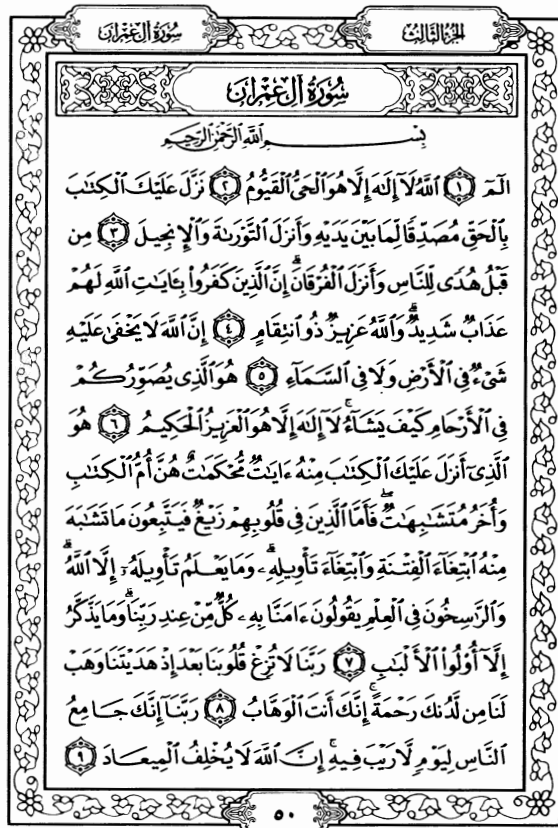 سُورَةُ آلِ عِمْرَانَ الجُزْءُ الثَّالِثُ
سُورَةُ آلِ عِمْرَانَ
بِسْمِ اللَّهِ الرَّحْمَٰنِ الرَّحِيمِ
الٓمٓ ۝١ ٱللَّهُ لَآ إِلَٰهَ إِلَّا هُوَ ٱلْحَىُّ ٱلْقَيُّومُ ۝٢ نَزَّلَ عَلَيْكَ ٱلْكِتَٰبَ
بِٱلْحَقِّ مُصَدِّقًا لِّمَا بَيْنَ يَدَيْهِ وَأَنزَلَ ٱلتَّوْرَىٰةَ وَٱلْإِنجِيلَ ۝٣ مِن
قَبْلُ هُدًى لِّلنَّاسِ وَأَنزَلَ ٱلْفُرْقَانَ ۗ إِنَّ ٱلَّذِينَ كَفَرُوا۟ بِـَٔايَٰتِ ٱللَّهِ لَهُمْ
عَذَابٌ شَدِيدٌ ۗ وَٱللَّهُ عَزِيزٌ ذُو ٱنتِقَامٍ ۝٤ إِنَّ ٱللَّهَ لَا يَخْفَىٰ عَلَيْهِ
شَىْءٌ فِى ٱلْأَرْضِ وَلَا فِى ٱلسَّمَآءِ ۝٥ هُوَ ٱلَّذِى يُصَوِّرُكُمْ
فِى ٱلْأَرْحَامِ كَيْفَ يَشَآءُ ۚ لَآ إِلَٰهَ إِلَّا هُوَ ٱلْعَزِيزُ ٱلْحَكِيمُ ۝٦ هُوَ
ٱلَّذِىٓ أَنزَلَ عَلَيْكَ ٱلْكِتَٰبَ مِنْهُ ءَايَٰتٌ مُّحْكَمَٰتٌ هُنَّ أُمُّ ٱلْكِتَٰبِ
وَأُخَرُ مُتَشَٰبِهَٰتٌ ۖ فَأَمَّا ٱلَّذِينَ فِى قُلُوبِهِمْ زَيْغٌ فَيَتَّبِعُونَ مَا تَشَٰبَهَ
مِنْهُ ٱبْتِغَآءَ ٱلْفِتْنَةِ وَٱبْتِغَآءَ تَأْوِيلِهِۦ ۗ وَمَا يَعْلَمُ تَأْوِيلَهُۥٓ إِلَّا ٱللَّهُ ۗ
وَٱلرَّٰسِخُونَ فِى ٱلْعِلْمِ يَقُولُونَ ءَامَنَّا بِهِۦ كُلٌّ مِّنْ عِندِ رَبِّنَا ۗ وَمَا يَذَّكَّرُ
إِلَّآ أُو۟لُوا۟ ٱلْأَلْبَٰبِ ۝٧ رَبَّنَا لَا تُزِغْ قُلُوبَنَا بَعْدَ إِذْ هَدَيْتَنَا وَهَبْ
لَنَا مِن لَّدُنكَ رَحْمَةً ۚ إِنَّكَ أَنتَ ٱلْوَهَّابُ ۝٨ رَبَّنَآ إِنَّكَ جَامِعُ
ٱلنَّاسِ لِيَوْمٍ لَّا رَيْبَ فِيهِ ۚ إِنَّ ٱللَّهَ لَا يُخْلِفُ ٱلْمِيعَادَ ۝٩
٥٠